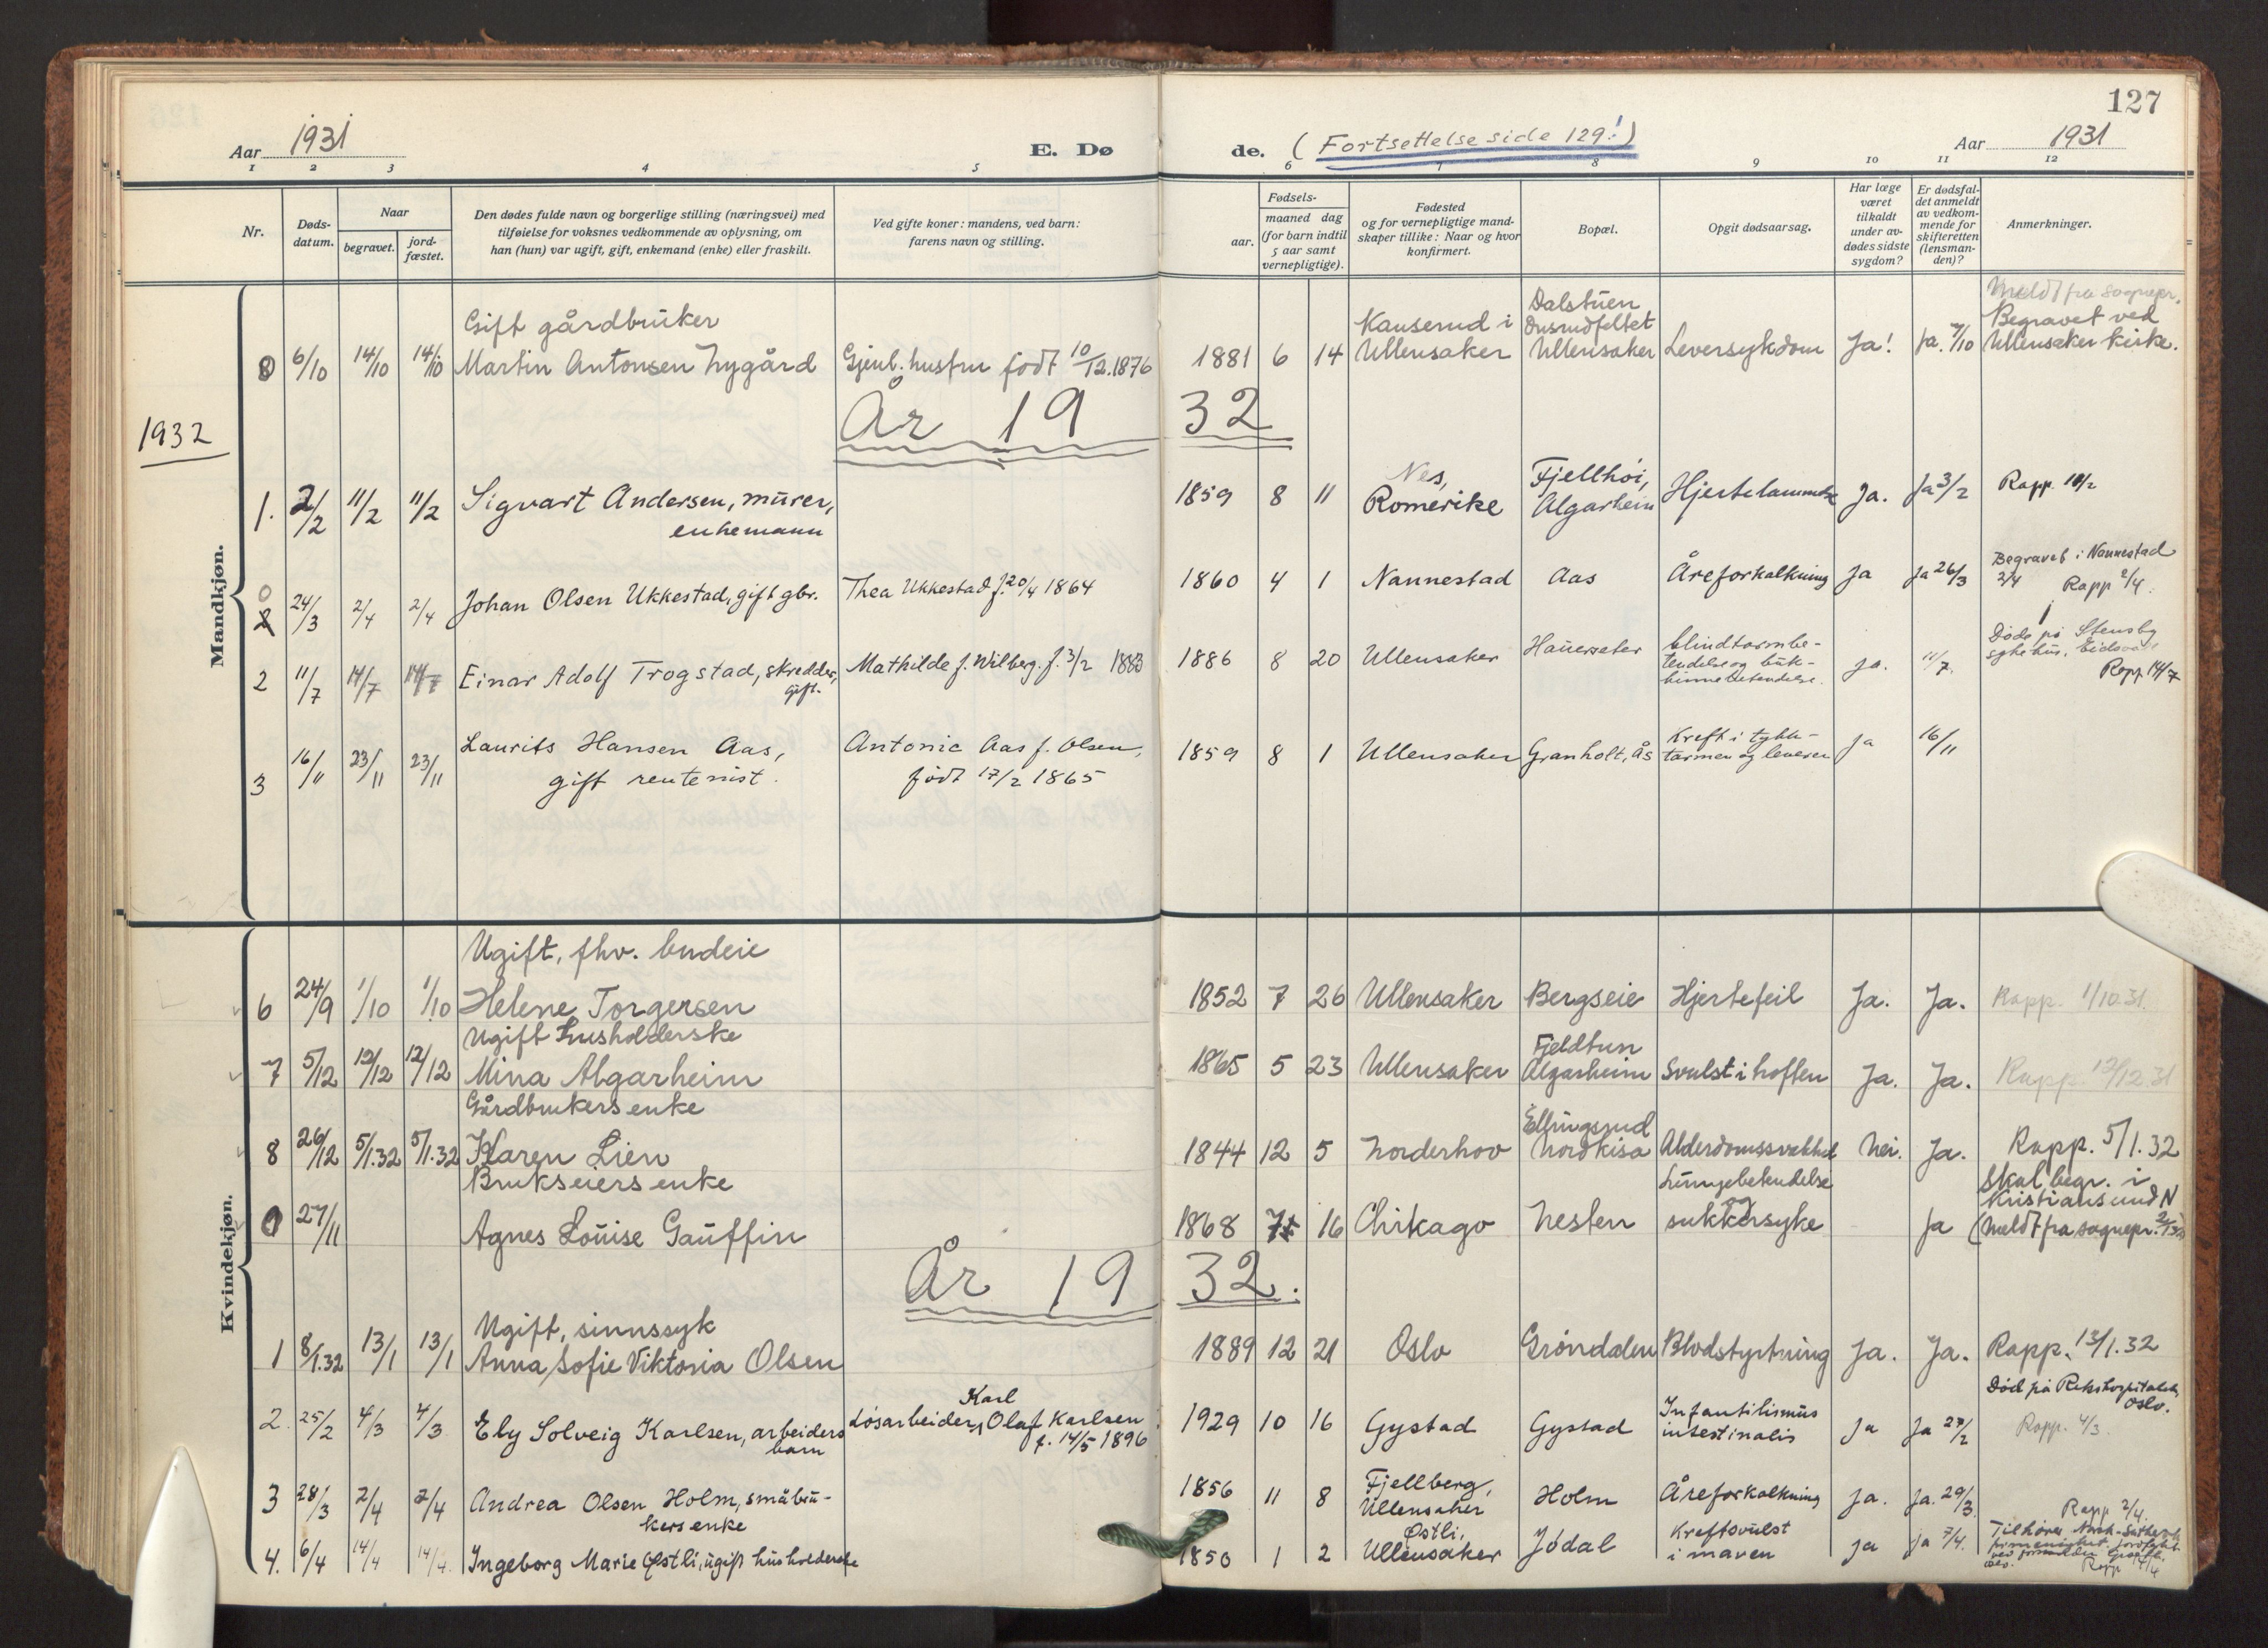 127
Aar 1931
E. Dø
de. (Fortsettelse side 129!)
Aar 1931
1 2 3 4 5 6 7 8 9 10 11 12
Nr.
Døds-
datum.
Naar
begravet.
jord-
fæstet.
Den dødes fulde navn og borgerlige stilling (næringsvei) med
tilføielse for voksnes vedkommende av oplysning, om
han (hun) var ugift, gift, enkemand (enke) eller fraskilt.
Ved gifte koner: mandens, ved barn:
farens navn og stilling.
Fødsels-
aar.
maaned dag
(for barn indtil
5 aar samt
vernepligtige).
Fødested
og for vernepligtige mand-
skaper tillike: Naar og hvor
konfirmert.
Bopæl.
Opgit dødsaarsag.
Har læge
været
tilkaldt
under av-
dødes sidste
sygdom?
Er dødsfal-
det anmeldt
av vedkom-
mende for
skifteretten
(lensman-
den)?
Anmerkninger.
Mandkjøn.
Gift gårdbruker
8 6/10 14/10 14/10 Martin Antonsen Nygård
Gjenl. hustru født 10/12.1876
1881 6 14
Kauserud i
Ullensaker
Dalstuen
Ullensaker
Leversykdom
Ja! Ja. 7/10
Meldt fra sognepr.
Begravet ved
Ullensaker kirke.
1932
År 19 32
1. 2/2 11/2 11/2 Sigvart Andersen, murer,
enkemann
1859 8 11
Nes,
Romerike
Fjellhøi,
Algarheim
Hjertelammelse
Ja. Ja 3/2
Rapp. 11/2
0
2 24/3 2/4 2/4 Johan Olsen Ukkestad, gift gbr.
Thea Ukkestad f. 20/4 1864
1860 4 1 Nannestad Aas Åreforkalkning Ja Ja 26/3
Begravet i Nannestad
2/4 Rapp 2/4.
2 11/7 14/7 14/7 Einar Adolf Trogstad, skredder,
gift.
Mathilde f. Wilberg. f. 3/2 1883
1886 8 20 Ullensaker Hauerseter
blindtarmbe-
tendelse og buk-
hinnebetendelse.
Ja. 11/7.
Døde på Stensby
sykehus, Eidsvoll
Rapp 14/7
3 16/11 23/11 23/11 Laurits Hansen Aas,
gift rentenist.
Antonie Aas f. Olsen,
født 17/2 1865
1859 8 1 Ullensaker Granholt, Ås
Kreft i tykk-
tarmen og leveren
Ja 16/11
Kvindekjøn.
Ugift, fhv. budeie
6 24/9 1/10 1/10 Helene Torgersen
1852 7 26 Ullensaker Bergseie Hjertefeil Ja. Ja. Rapp. 1/10.31.
Ugift husholderske
7 5/12 12/12 12/12 Mina Algarheim
1865 5 23 Ullensaker
Fjeldtun
Algarheim
Svulst i hoften Ja. Ja. Rapp. 12/12.31
Gårdbrukers enke
8 26/12 5/1.32 5/1.32 Karen Lien
1844 12 5 Norderhov
Ellingsrud
Nordkisa
Alderdomssvakhet Nei. Ja. Rapp. 5/1.32
Brukseiers enke
0 27/11 Agnes Louise Gauffin
1868 16 Chikago Nesten
Lungebetendelse
og
sukkersyke
Ja
Skal begr. i
Kristiansund N
(Meldt fra sognepr.
År 19 32.
Ugift, sinnssyk
1 8/1.32 13/1 13/1 Anna Sofie Viktoria Olsen
1889 12 21 Oslo Grøndalen Blodstyrtning Ja. Ja. Rapp. 13/1.32
2. 25/2 4/3 4/3 Ely Solveig Karlsen, arbeiders
barn
Karl
Løsarbeider, Olaf Karlsen
f. 14/5 1896
1929 10 16 Gystad Gystad
Infantilismus
intestinalis
Ja Ja 27/2
Død på Rikshospitalet,
Oslo.
Rapp. 4/3.
3 28/3 2/4 2/4 Andrea Olsen Holm, småbru-
kers enke
1856 11 8
Fjellberg,
Ullensaker
Holm Åreforkalkning Ja. Ja. 29/3.
Rapp 2/4.
4. 6/4 14/4 14/4. Ingeborg Marie Østli, ugift husholderske
1850 1 2
Østli,
Ullensaker
Jødal
Kreftsvulst
i maven
Ja Ja 7/4.
Tilhører
Rapp 14/4